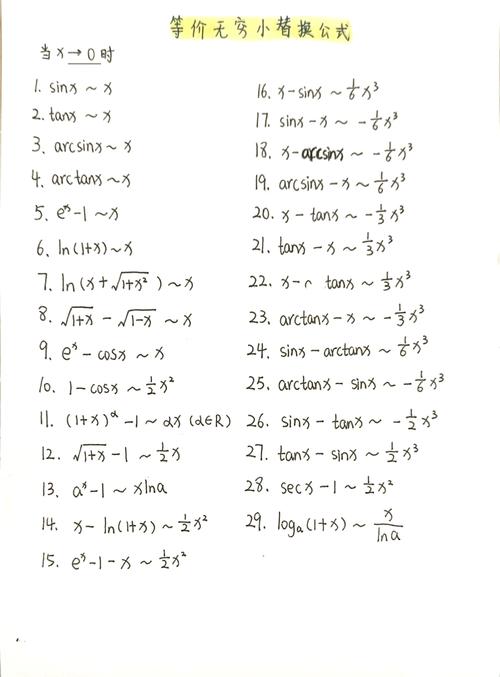 等价无穷小替换公式
当 x→0 时
1. sinx ~ x
2. tanx ~ x
3. arcsinx ~ x
4. arctanx ~ x
5. eˣ-1 ~ x
6. ln(1+x) ~ x
7. ln(x+√(1+x²)) ~ x
8. √(1+x) - √(1-x) ~ x
9. eˣ - cosx ~ x
10. 1-cosx ~ 1/2 x²
11. (1+x)^α - 1 ~ αx (α∈R)
12. √(1+x) - 1 ~ 1/2 x
13. aˣ-1 ~ xlna
14. x - ln(1+x) ~ 1/2 x²
15. eˣ-1-x ~ 1/2 x²
16. x-sinx ~ 1/6 x³
17. sinx-x ~ -1/6 x³
18. x-arcsinx ~ -1/6 x³
19. arcsinx-x ~ 1/6 x³
20. x-tanx ~ -1/3 x³
21. tanx-x ~ 1/3 x³
22. x- tanx ~ 1/3 x³
23. arctanx-x ~ -1/3 x³
24. sinx-arctanx ~ 1/6 x³
25. arctanx-sinx ~ -1/6 x³
26. sinx-tanx ~ -1/2 x³
27. tanx-sinx ~ 1/2 x³
28. secx-1 ~ 1/2 x²
29. logₐ(1+x) ~ x/lna